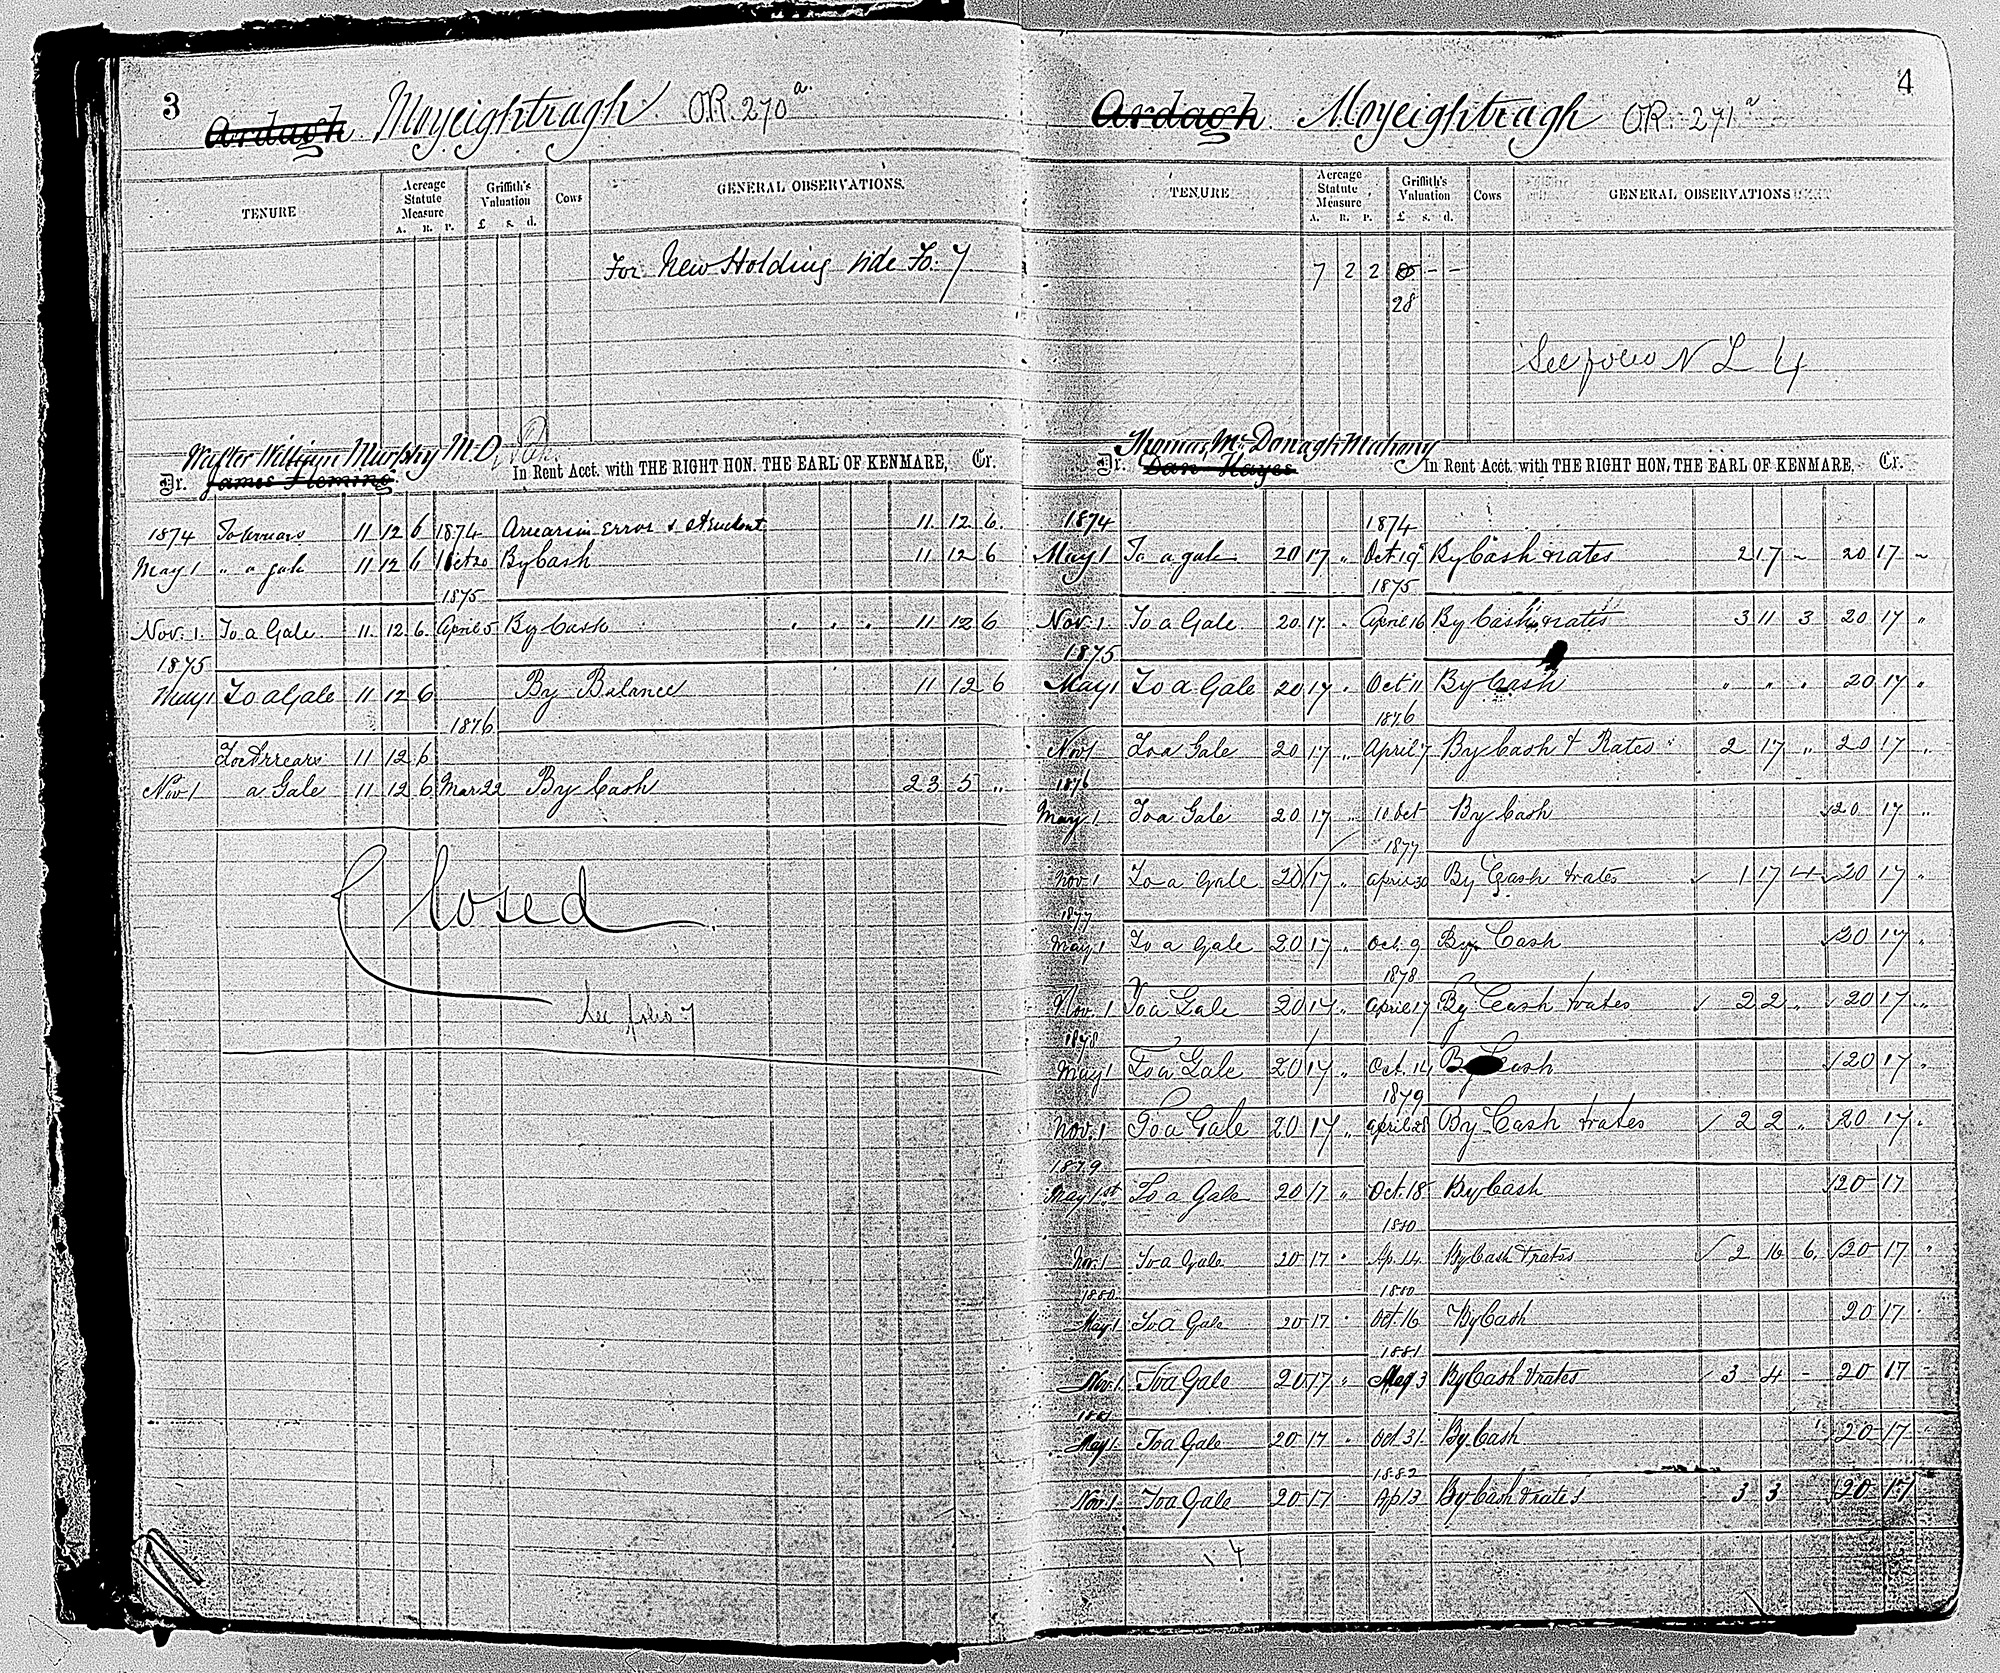 3
Ardagh Moyeightragh OR. 270 a.
TENURE
Acreage Statute Measure
A. R. P.
Griffith's Valuation
£ s. d.
Cows
GENERAL OBSERVATIONS.
For New Holding vide Fo. 7
Walter William Murphy M.D.
Dr. James Fleming In Rent Acct. with THE RIGHT HON. THE EARL OF KENMARE, Cr.
1874 To Arrears 11 12 6 1874 Arrears in Error 11 12 6
May 1 " a gale 11 12 6 Oct 20 By Cash 11 12 6
1875
Nov. 1. To a Gale 11 12 6 April 5 By Cash " " " 11 12 6
1875
May 1 To a Gale 11 12 6 By Balance 11 12 6
1876
To Arrears 11 12 6
Nov 1 a Gale 11 12 6 Mar 22 By Cash 23 5 "
Closed
See folio 7
4
Ardagh Moyeightragh OR. 271 a
TENURE
Acreage Statute Measure
A. R. P.
Griffith's Valuation
£ s. d.
Cows
GENERAL OBSERVATIONS
7 2 2 - -
28
See folio N L 4
Thomas McDonagh Mahony
Dr. Dan Hayes In Rent Acct. with THE RIGHT HON. THE EARL OF KENMARE, Cr.
1874 1874
May 1 To a gale 20 17 " Oct 19 By Cash & rates 2 17 - 20 17 -
1875
Nov. 1. To a Gale 20 17 " April 16 By Cash & rates 3 11 3 20 17 "
1875
May 1 To a Gale 20 17 " Oct 11 By Cash " " " 20 17 "
1876
Nov 1 To a Gale 20 17 " April 7 By Cash & Rates 2 17 " 20 17 "
1876
May 1 To a Gale 20 17 " 10 Oct By Cash 20 17 "
1877
Nov. 1 To a Gale 20 17 " April 30 By Cash & rates 1 17 4 20 17 "
1877
May 1 To a Gale 20 17 " Oct. 9 By Cash 20 17 "
1878
Nov. 1 To a Gale 20 17 " April 17 By Cash & rates 2 2 " 20 17 "
1878
May 1 To a Gale 20 17 " Oct. 14 By Cash 20 17 "
1879
Nov. 1 To a Gale 20 17 " April 28 By Cash & rates 2 2 " 20 17 "
1879
May 1st To a Gale 20 17 " Oct. 18 By Cash 20 17
1880
Nov. 1 To a Gale 20 17 " Ap. 14 By Cash & rates 2 16 6 20 17 "
1880 1880
May 1 To a Gale 20 17 " Oct. 16 By Cash 20 17
1881
Nov. 1 To a Gale 20 17 " May 3 By Cash & rates 3 4 - 20 17 -
1881
May 1 To a Gale 20 17 " Oct 31 By Cash 20 17
1882
Nov. 1 To a Gale 20 17 Ap 13 By Cash & rates 3 3 20 17